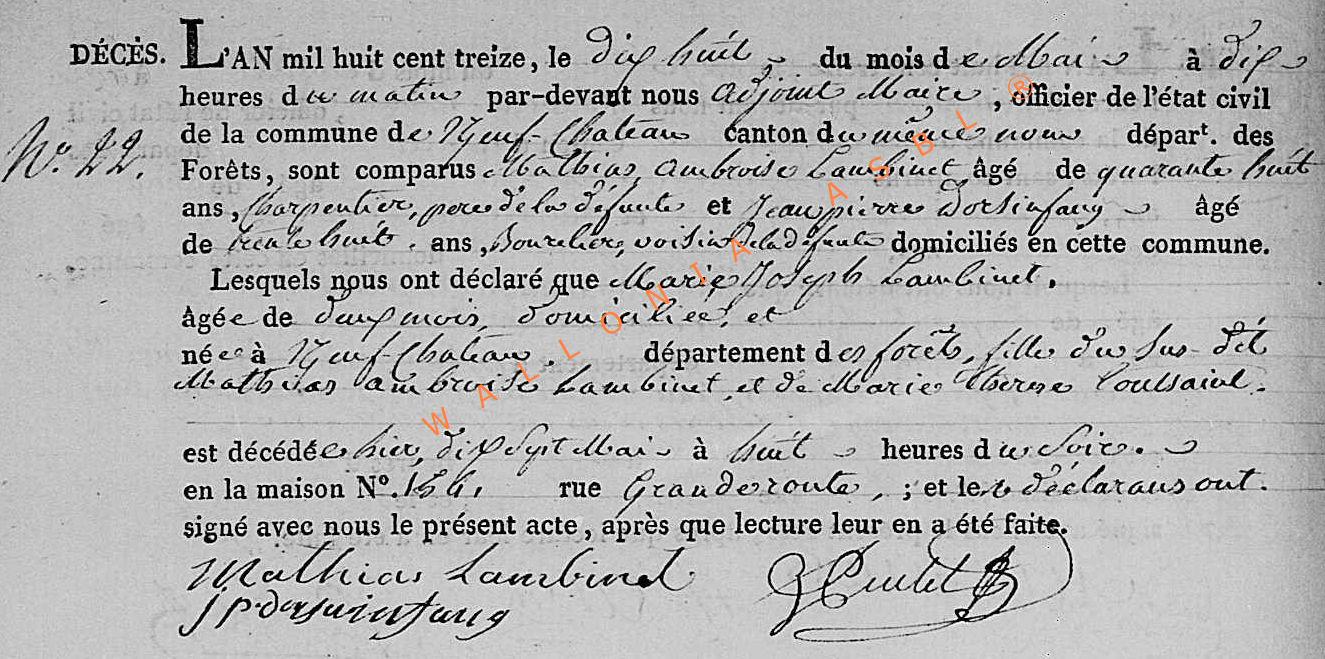 DÉCÈS. L'AN mil huit cent treize, le dix huit du mois de Mai à dix
heures du matin par-devant nous adjoint Maire, officier de l'état civil
de la commune de Neuf-Chateau canton du même nom départ. des
N° 22.
Forêts, sont comparus Mathias ambroise Lambinet âgé de quarante huit
ans, Charpentier, pere de la défunte et Jean pierre Dorsinfang âgé
de trente huit ans, Bourelier, voisin de la défunte domiciliés en cette commune.
Lesquels nous ont déclaré que Marie Joseph Lambinet,
âgée de deux mois, domiciliée, et
née à Neuf-Chateau. département des forêts, fille du sus-dit
Mathias ambroise Lambinet, et de Marie therese Toussaint.
est décédée hier, dix Sept Mai à huit heures du soir.
en la maison N°. rue Grande route, ; et les déclarans ont
signé avec nous le présent acte, après que lecture leur en a été faite.
Mathias Lambinet
j p dorsainfang
WALLONIA ASBL ®